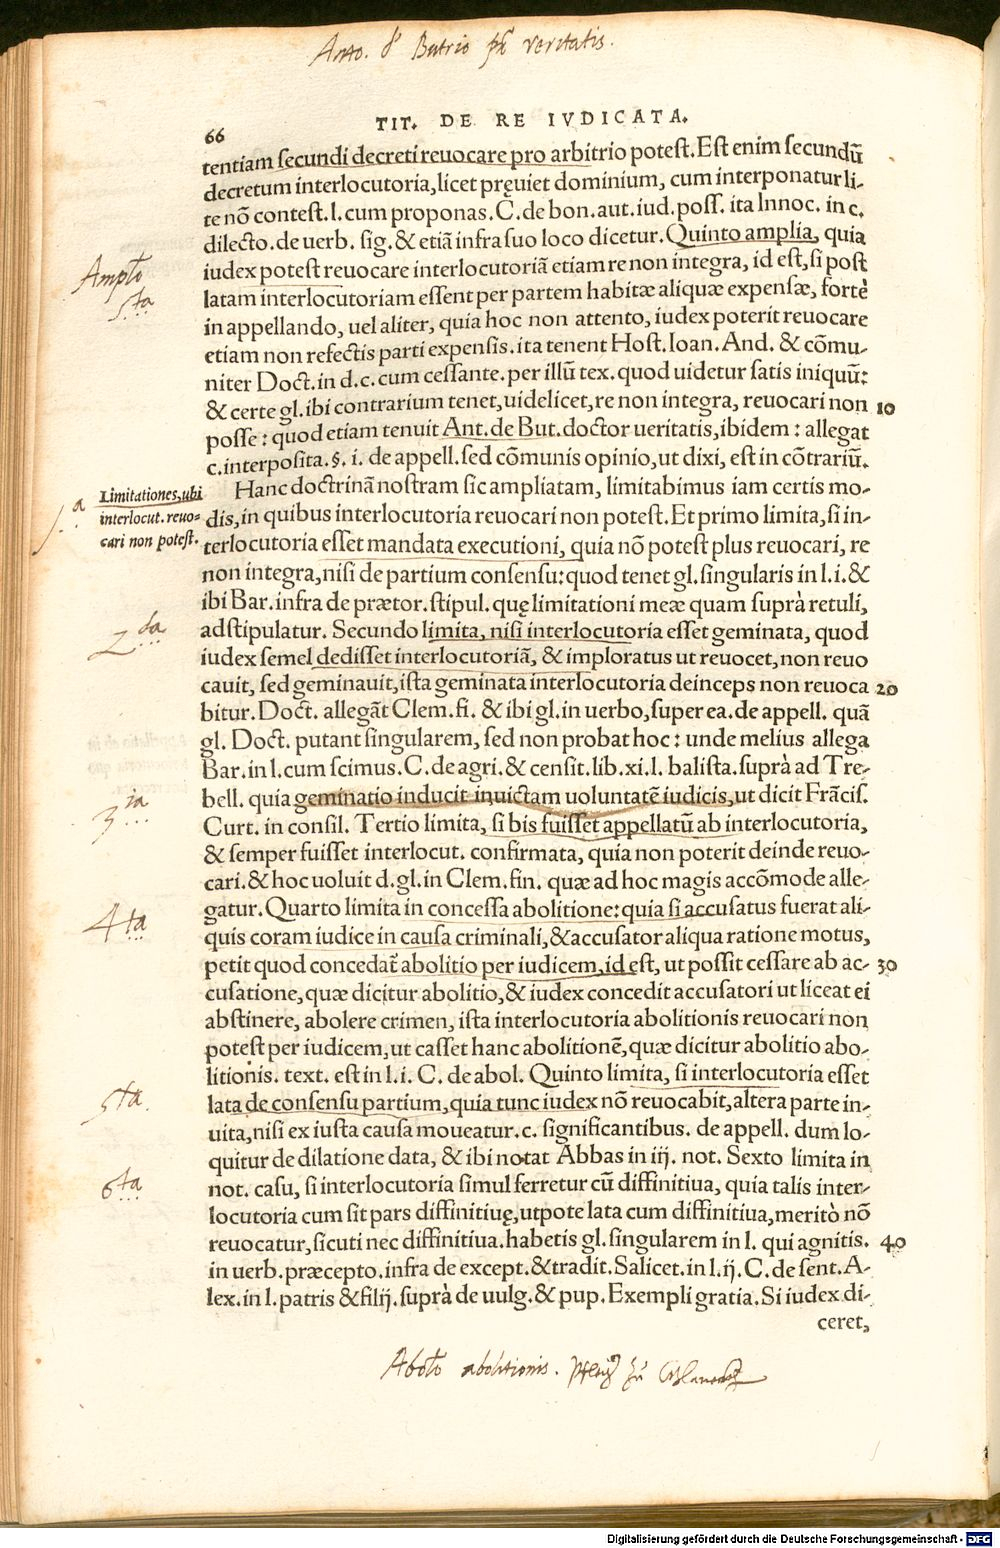 Anto. d' Butrio veritatis.
TIT. DE RE IVDICATA.
66
tentiam secundi decreti reuocare pro arbitrio potest. Est enim secundũ
decretum interlocutoria, licet pręuiet dominium, cum interponatur li-
te nõ contest. l. cum proponas. C. de bon. aut. iud. poss. ita Innoc. in c.
dilecto. de uerb. sig. & etiã infra suo loco dicetur. Quinto amplia, quia
iudex potest reuocare interlocutoriã etiam re non integra, id est, si post
latam interlocutoriam essent per partem habitæ aliquæ expensæ, fortè
in appellando, uel aliter, quia hoc non attento, iudex poterit reuocare
etiam non refectis parti expensis. ita tenent Host. Ioan. And. & cõmu-
niter Doct. in d. c. cum cessante. per illũ tex. quod uidetur satis iniquũ:
& certe gl. ibi contrarium tenet, uidelicet, re non integra, reuocari non 10
posse: quod etiam tenuit Ant. de But. doctor ueritatis, ibidem: allegat
c. interposita. §. i. de appell. sed cõmunis opinio, ut dixi, est in cõtrariũ.
Hanc doctrinã nostram sic ampliatam, limitabimus iam certis mo-
dis, in quibus interlocutoria reuocari non potest. Et primo limita, si in-
terlocutoria esset mandata executioni, quia nõ potest plus reuocari, re
non integra, nisi de partium consensu: quod tenet gl. singularis in l. i. &
ibi Bar. infra de prætor. stipul. quę limitationi meæ quam suprà retuli,
adstipulatur. Secundo limita, nisi interlocutoria esset geminata, quod
iudex semel dedisset interlocutoriã, & imploratus ut reuocet, non reuo
cauit, sed geminauit, ista geminata interlocutoria deinceps non reuoca 20
bitur. Doct. allegãt Clem. fi. & ibi gl. in uerbo, super ea. de appell. quã
gl. Doct. putant singularem, sed non probat hoc: unde melius allega
Bar. in l. cum scimus. C. de agri. & censit. lib. xi. l. balista. suprà ad Tre-
bell. quia geminatio inducit inuictam uoluntatẽ iudicis, ut dicit Frãcis.
Curt. in consil. Tertio limita, si bis fuisset appellatũ ab interlocutoria,
& semper fuisset interlocut. confirmata, quia non poterit deinde reuo-
cari. & hoc uoluit d. gl. in Clem. fin. quæ ad hoc magis accõmode alle-
gatur. Quarto limita in concessa abolitione: quia si accusatus fuerat ali-
quis coram iudice in causa criminali, & accusator aliqua ratione motus,
petit quod concedat̃ abolitio per iudicem, id est, ut possit cessare ab ac- 30
cusatione, quæ dicitur abolitio, & iudex concedit accusatori ut liceat ei
abstinere, abolere crimen, ista interlocutoria abolitionis reuocari non
potest per iudicem, ut casset hanc abolitionẽ, quæ dicitur abolitio abo-
litionis. text. est in l. i. C. de abol. Quinto limita, si interlocutoria esset
lata de consensu partium, quia tunc iudex nõ reuocabit, altera parte in-
uita, nisi ex iusta causa moueatur. c. significantibus. de appell. dum lo-
quitur de dilatione data, & ibi notat Abbas in iij. not. Sexto limita in
not. casu, si interlocutoria simul ferretur cũ diffinitiua, quia talis inter-
locutoria cum sit pars diffinitiuę, utpote lata cum diffinitiua, meritò nõ
reuocatur, sicuti nec diffinitiua. habetis gl. singularem in l. qui agnitis. 40
in uerb. præcepto. infra de except. & tradit. Salicet. in l. ij. C. de sent. A-
lex. in l. patris & filij. suprà de uulg. & pup. Exempli gratia. Si iudex di-
ceret,
Ampl̃o
5.ta
1.a
Limitationes, ubi
interlocut. reuo-
cari non potest.
2.da
3.ia
4.ta
5.ta
6.ta
Abol̃o abolitionis.
Digitalisierung gefördert durch die Deutsche Forschungsgemeinschaft - DFG